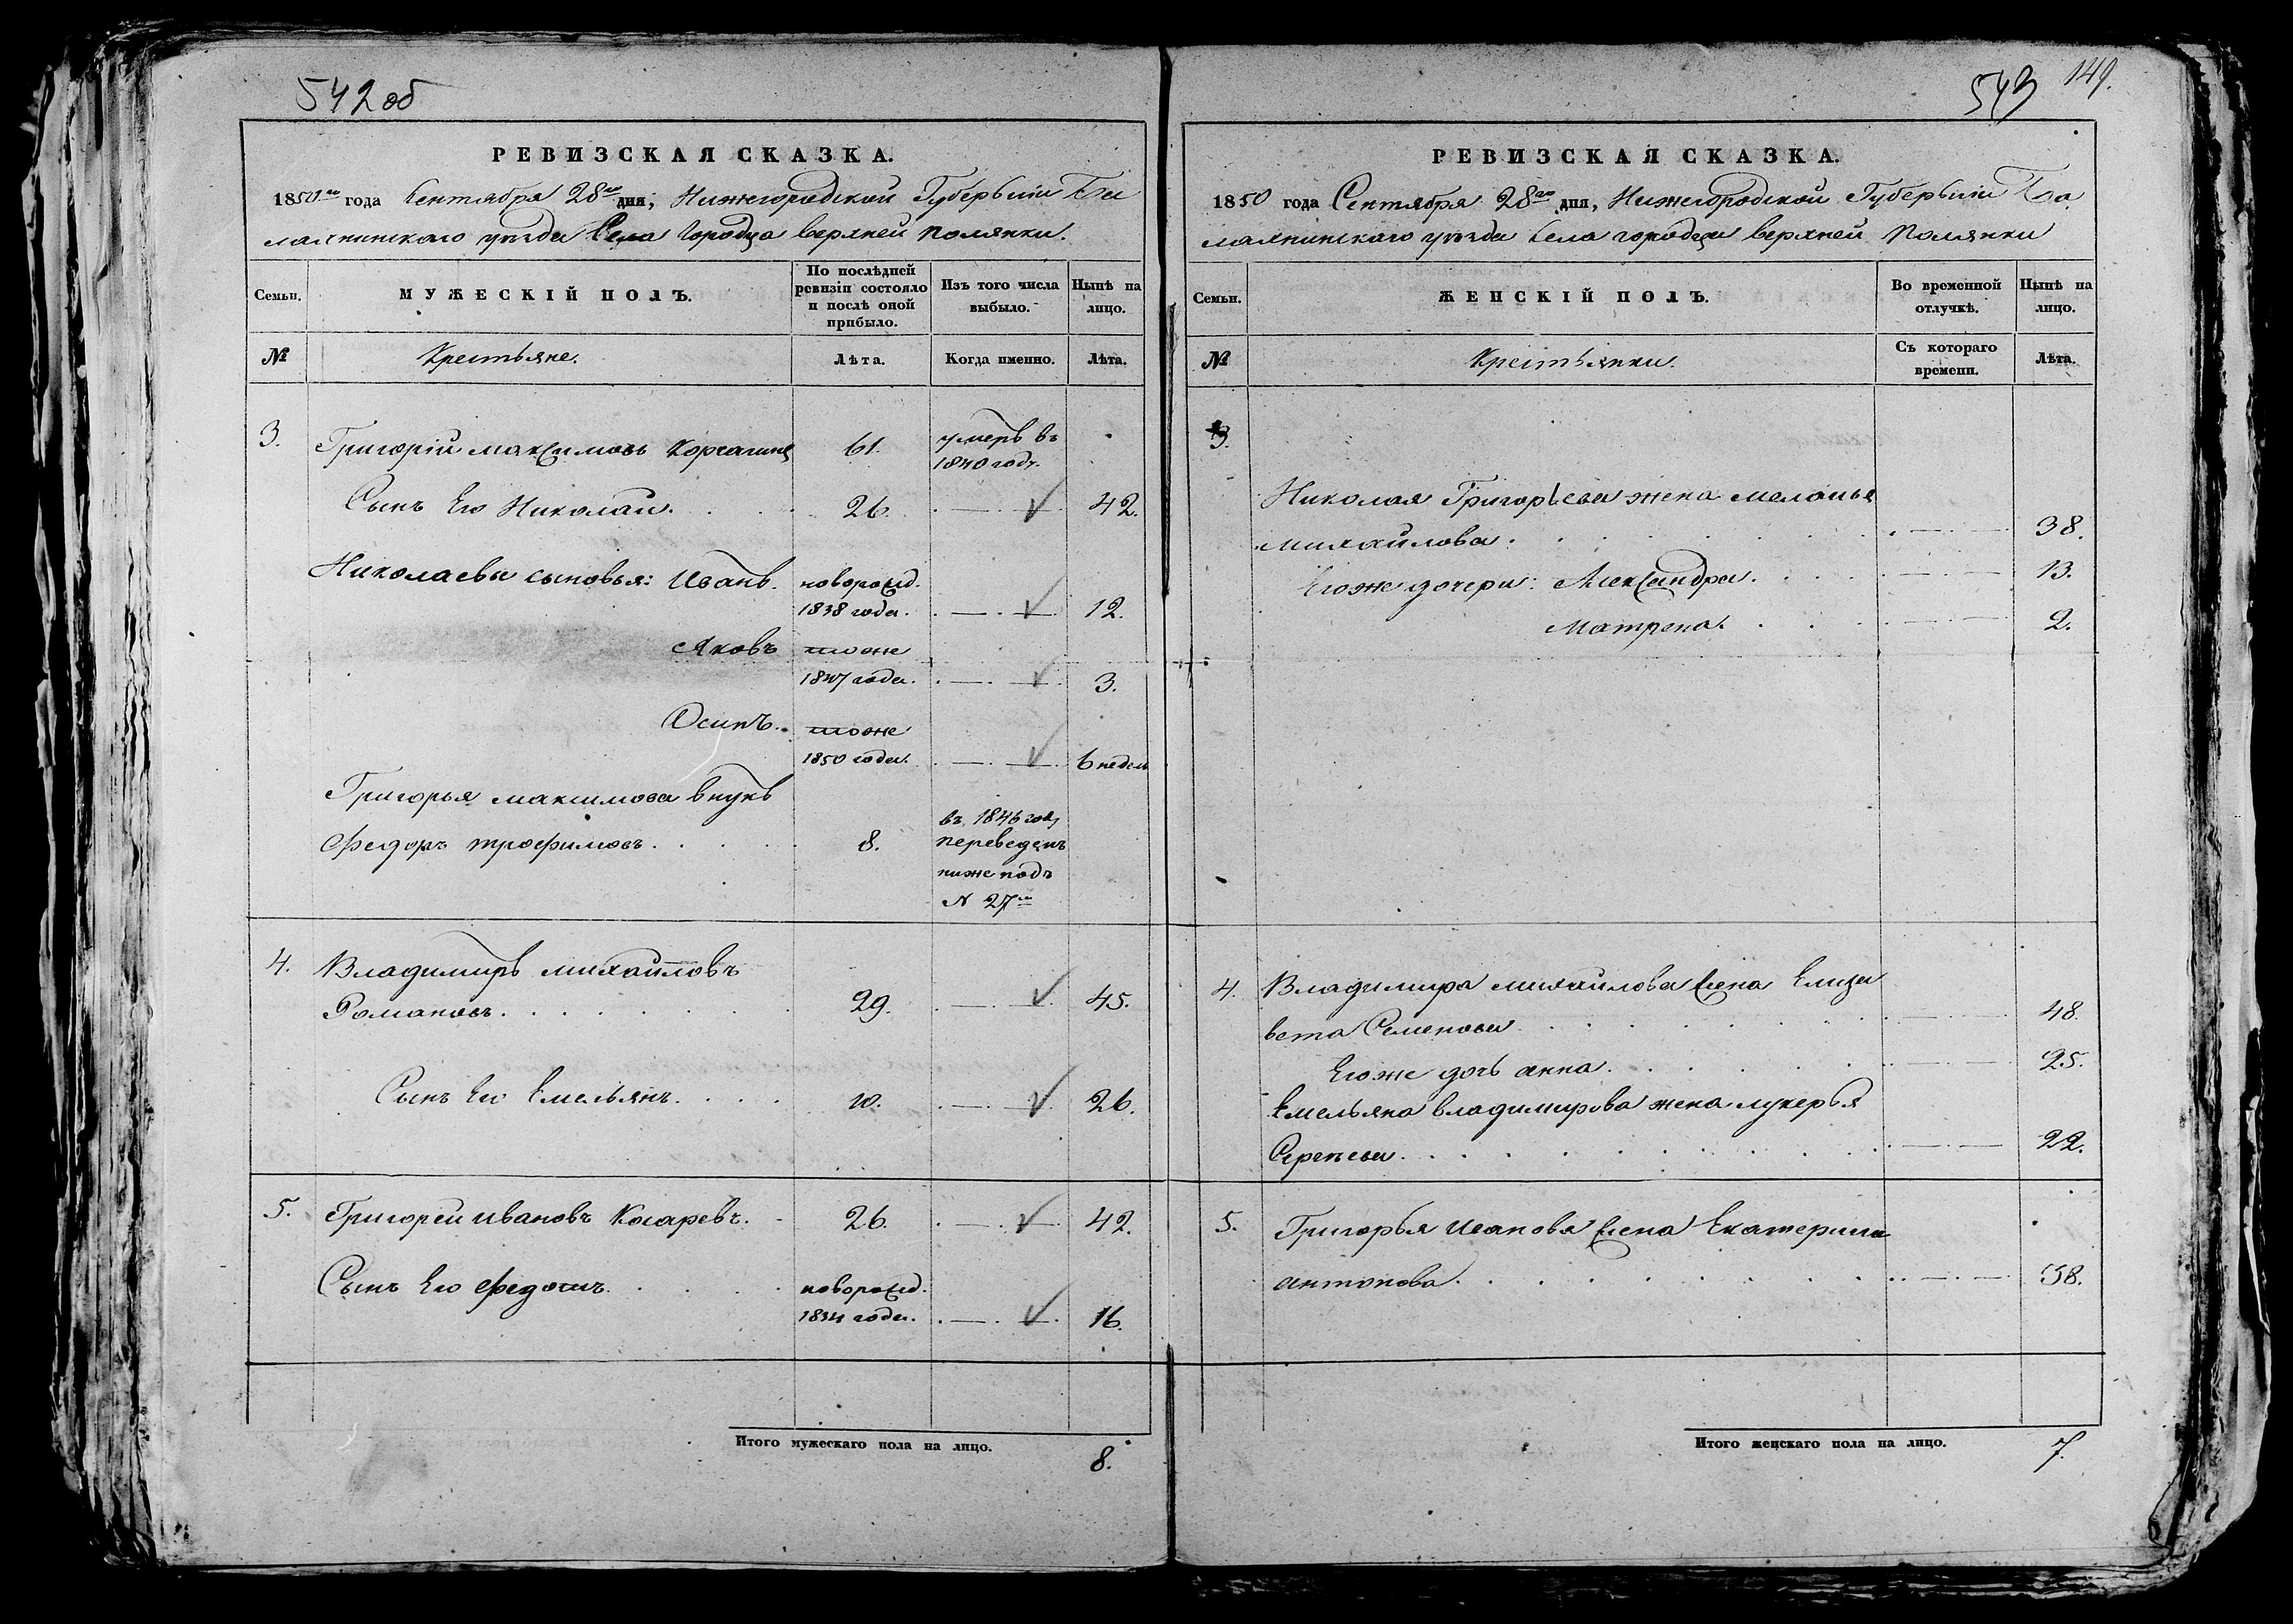 542 об
РЕВИЗСКАЯ СКАЗКА.
1850го года Сентября 28го дня, Нижегородской Губернiи Ба
лахнинскаго уѣзда Села Городца верхней полянки.
Семьи.
МУЖЕСКІЙ ПОЛЪ.
По послѣдней ревизіи состояло и послѣ оной прибыло.
Изъ того числа выбыло.
Нынѣ на лицо.
№
Крестьяне.
Лѣта.
Когда именно.
Лѣта.
3. Григорiй максимовъ Корчагинъ 61. умеръ въ
1840 году.
Сынъ Его Николай. 26. 42.
Николаевы сыновья: Иванъ. новорожд.
1838 года. 12.
Яковъ тоже
1847 года. 3.
Осипъ. тоже
1850 года. 6 недель
Григорья максимова внукъ
Федоръ трофимовъ. 8. въ 1846 году
переведенъ
ниже подъ
N 27м
4. Владимиръ михайловъ
Романовъ. 29. 45.
Сынъ Его Емельянъ. 10. 26.
5. Григорей ивановъ Косаревъ. 26. 42.
Сынъ Его Федотъ. новорожд.
1834 года. 16.
Итого мужескаго пола на лицо. 8.
543 149.
РЕВИЗСКАЯ СКАЗКА.
1850 года Сентября 28го дня, Нижегородской Губернiи Ба
лахнинскаго уѣзда Села городца верхней Полянки
Семьи.
ЖЕНСКІЙ ПОЛЪ.
Во временной отлучкѣ.
Нынѣ на лицо.
№
Крестьянки.
Съ котораго времени.
Лѣта.
3.
Николая Григорьева жена меланья
михайлова. 38.
Егоже дочери: Александра. 13.
Матрена. 2.
4. Владимира михайлова жена Елиза
вета Семенова. 48.
Егоже дочь анна. 25.
Емельяна владимирова жена лукерья
Сергеева. 22.
5. Григорья иванова жена Екатерина
антонова. 38.
Итого женскаго пола на лицо. 7.